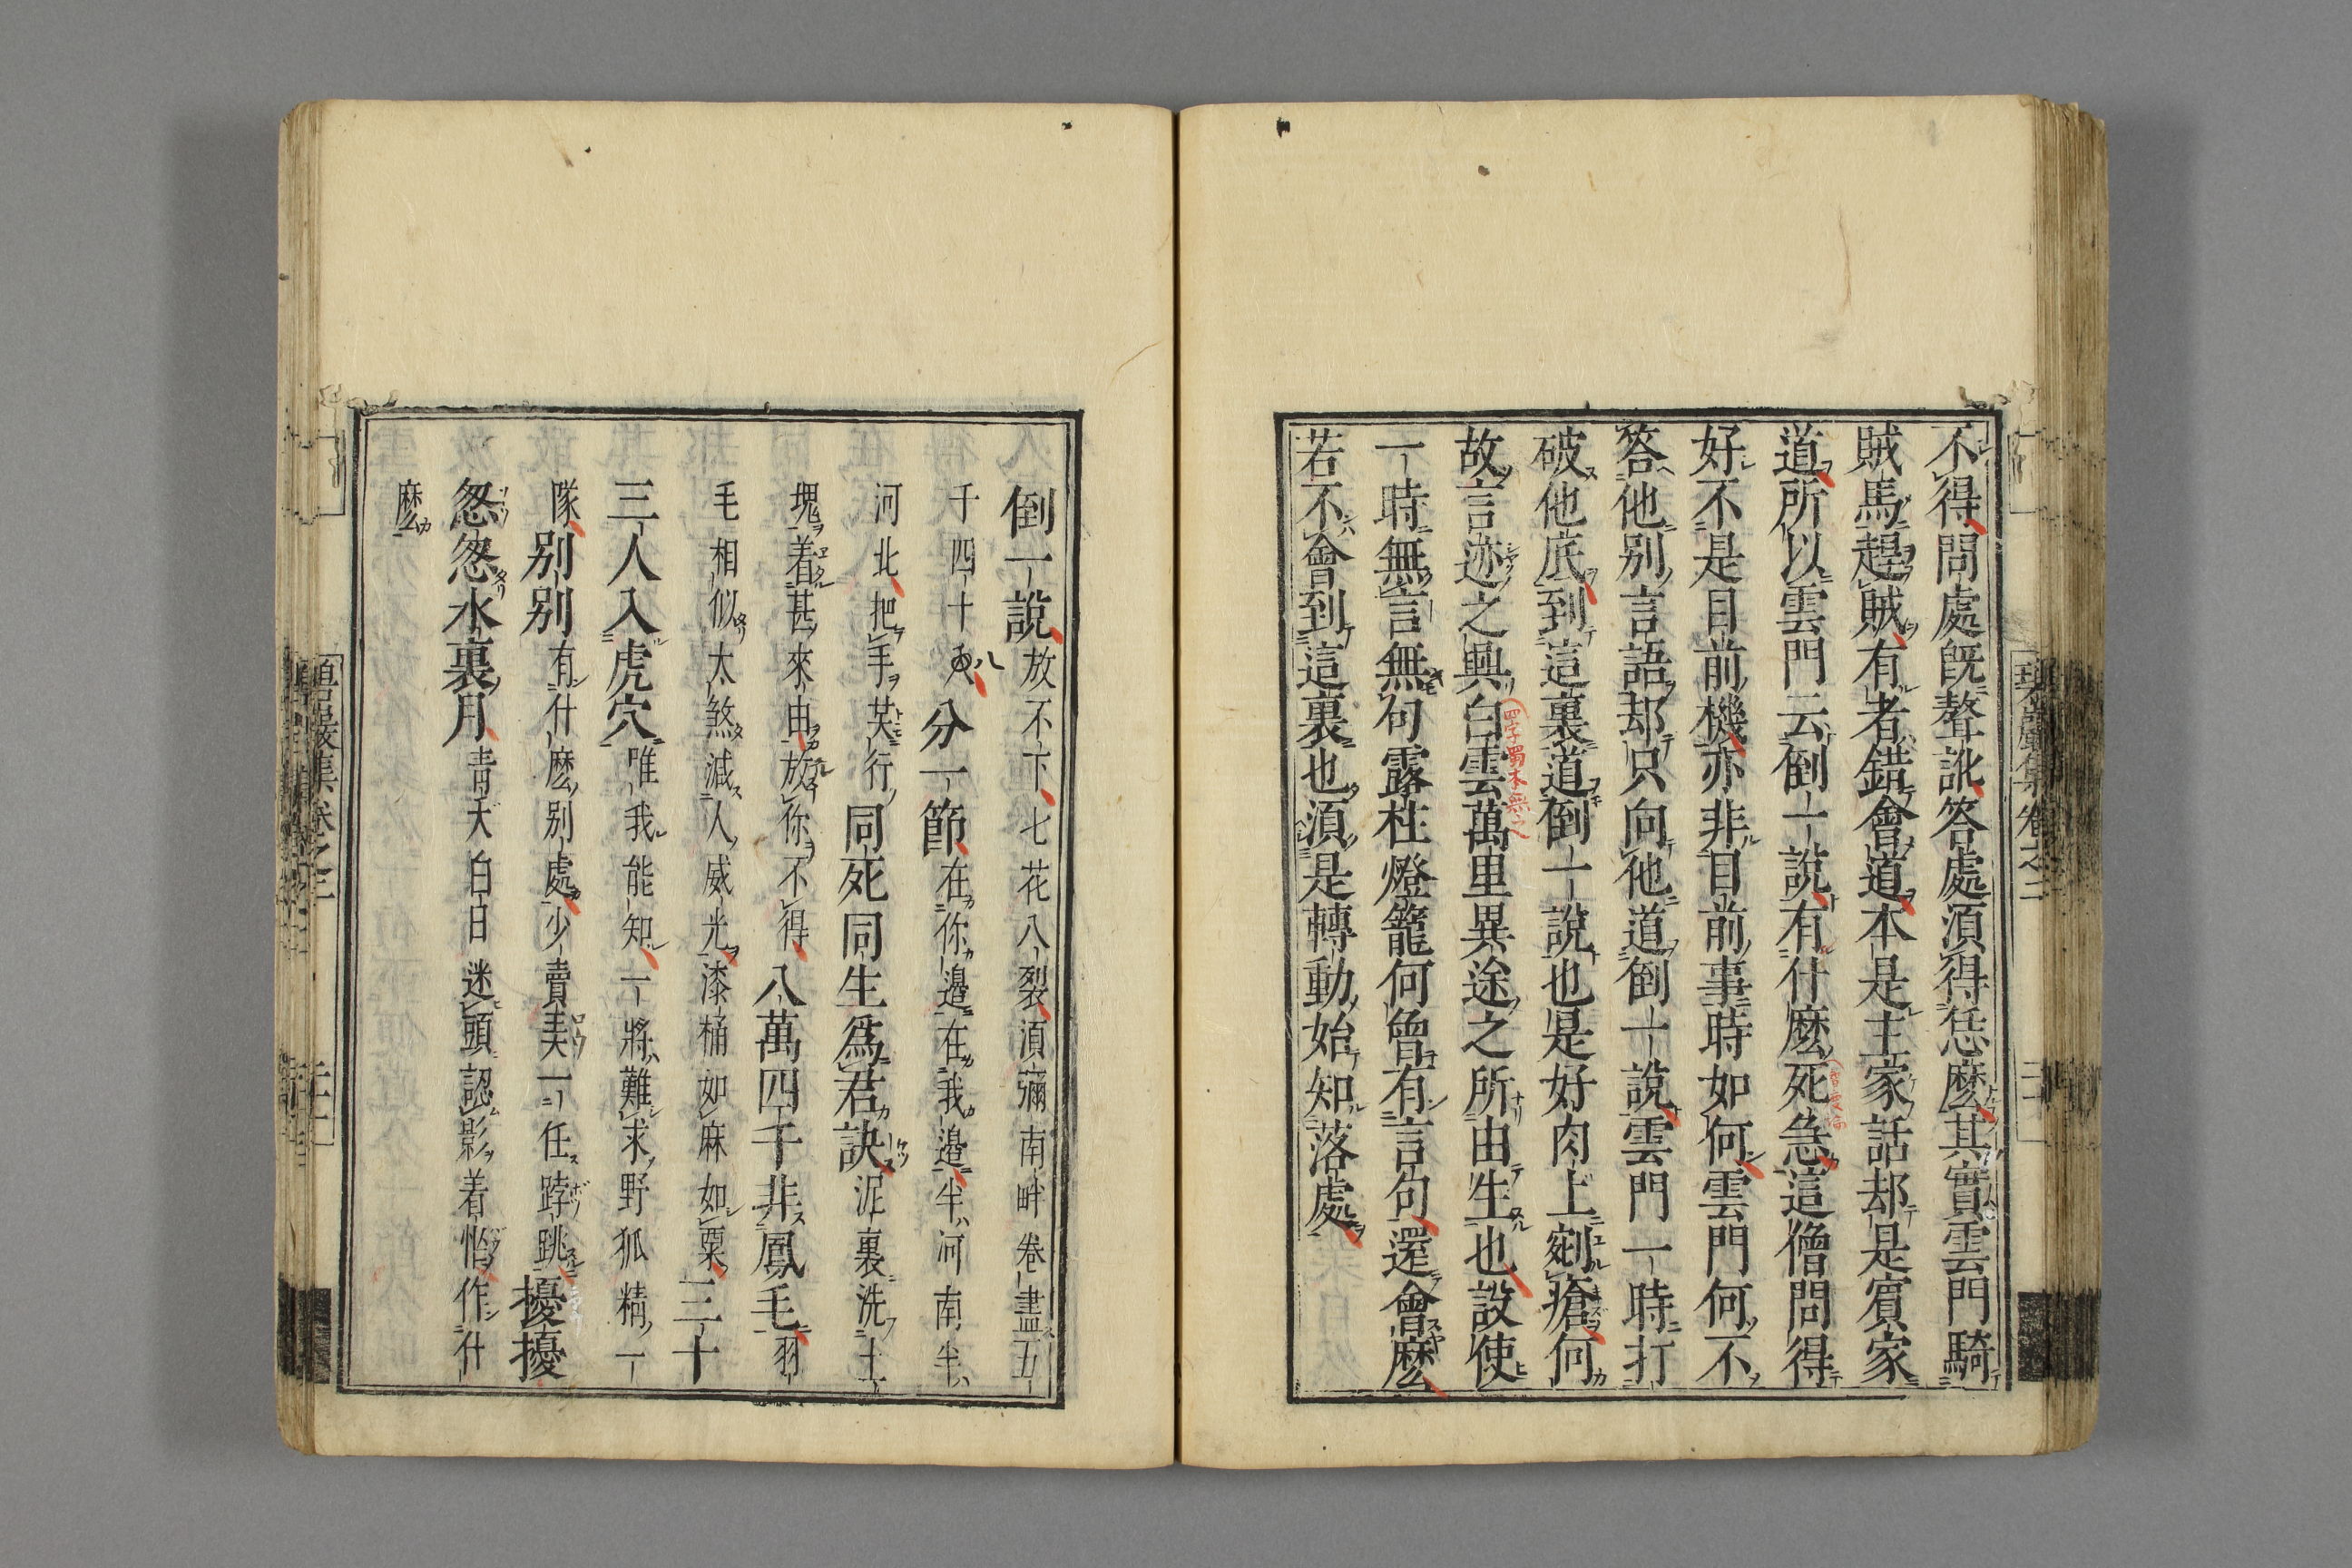 不得問處既聱訛答處須得恁麼其實雲門騎
賊馬趕賊有者錯會道本是主家話却是賓家
道所以雲門云倒一說有什麼死急這僧問得
好不是目前機亦非目前事時如何雲門何不
答他別言語却只向他道倒一說雲門一時打
破他底到這裏道倒一說也是好肉上剜瘡何
故言迹之興白雲萬里異途之所由生也設使
一時無言無句露柱燈籠何曾有言句還會麼
若不會到這裏也須是轉動始知落處
四字蜀本無之
倒一說放不下七花八裂須彌南畔卷盡五
千四十八分一節在你邊在我邊半河南半
河北把手共行同死同生爲君訣泥裏洗土
塊着甚來由放你不得八萬四千非鳳毛羽
毛相似太煞減人威光漆桶如麻如粟三十
三人入虎穴唯我能知一將難求野狐精一
隊別別有什麼別處少賣弄一任𨁝跳擾擾
怱怱水裏月青天白日迷頭認影着忙作什
麼
碧巖集卷之二
碧巖集卷之二